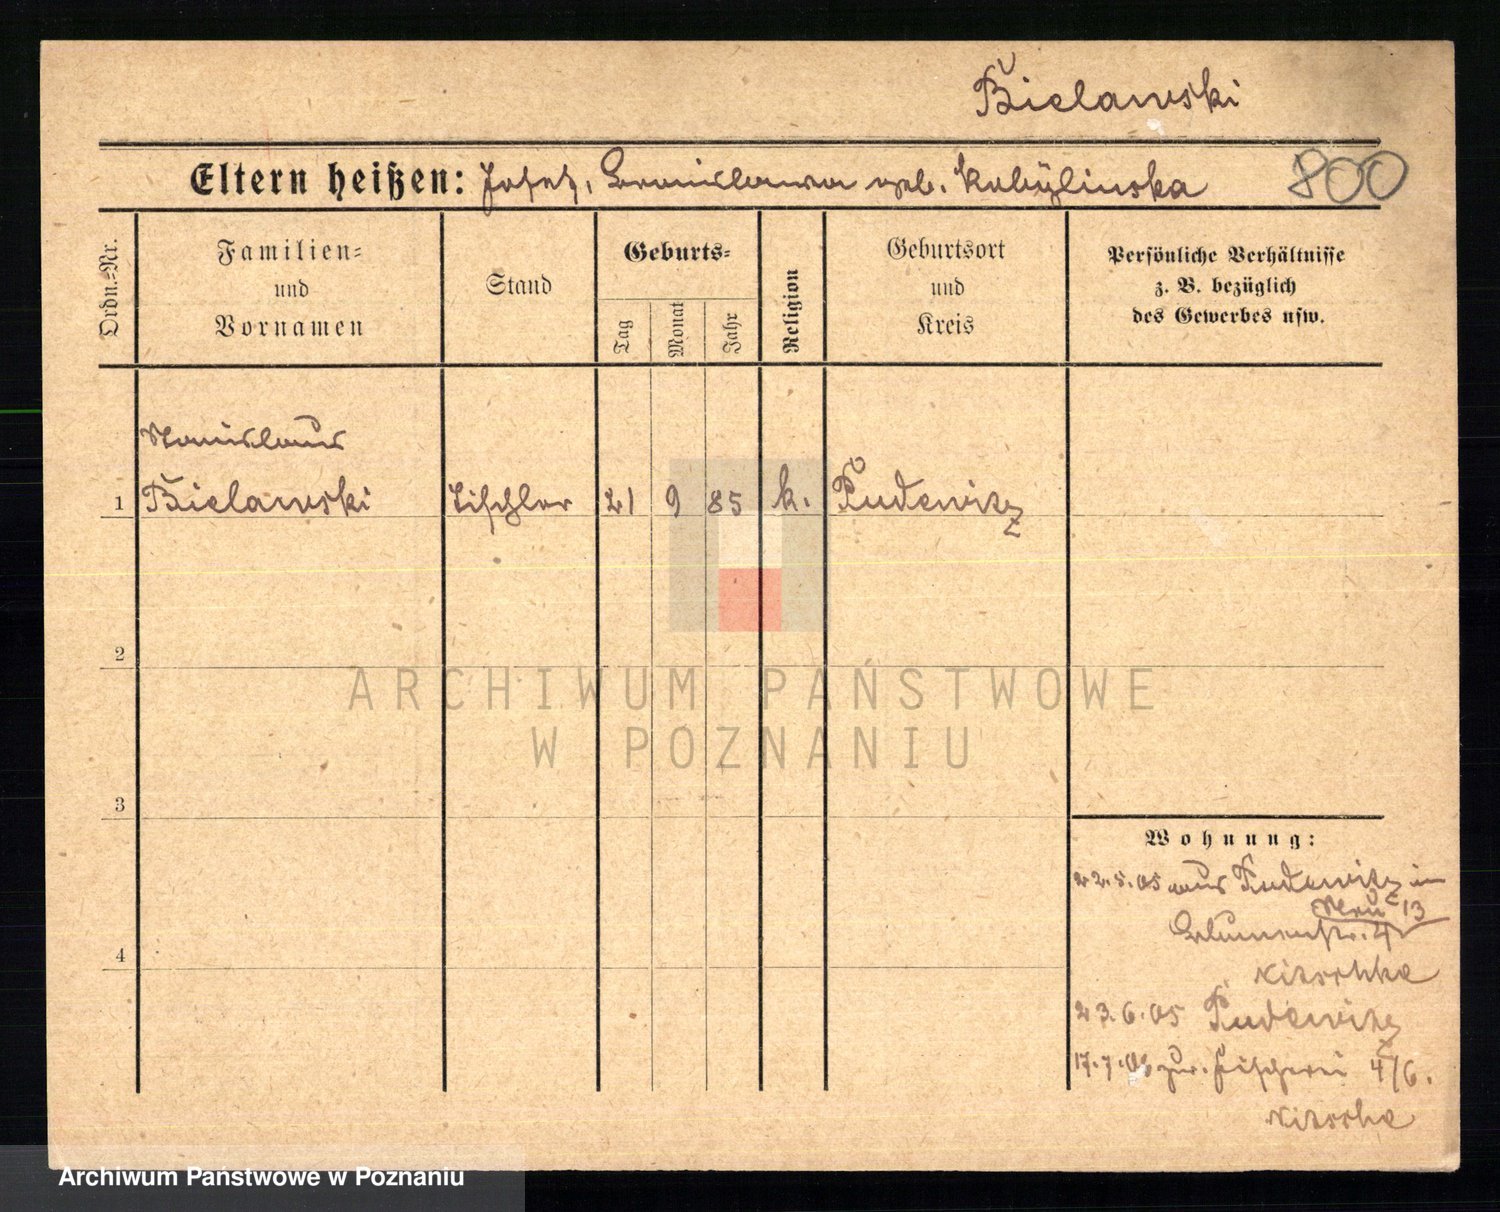 Bielawski
Eltern heißen: Josef, Bronislawa geb. Kobylinska
800
Ordn.-Nr.
Familien-
und
Vornamen
Stand
Geburts-
Tag
Monat
Jahr
Religion
Geburtsort
und
Kreis
Persönliche Verhältnisse
z. B. bezüglich
des Gewerbes usw.
Stanislaus
1 Bielawski Tischler 21 9 85 k. Pudewitz
2
ARCHIWUM PAŃSTWOWE
W POZNANIU
3
Wohnung:
22.5.05 aus Pudewitz in
13
Blumenstr. 4
4
23.6.05 Pudewitz
17.7. zur. Fischerei 4/6.
Archiwum Państwowe w Poznaniu